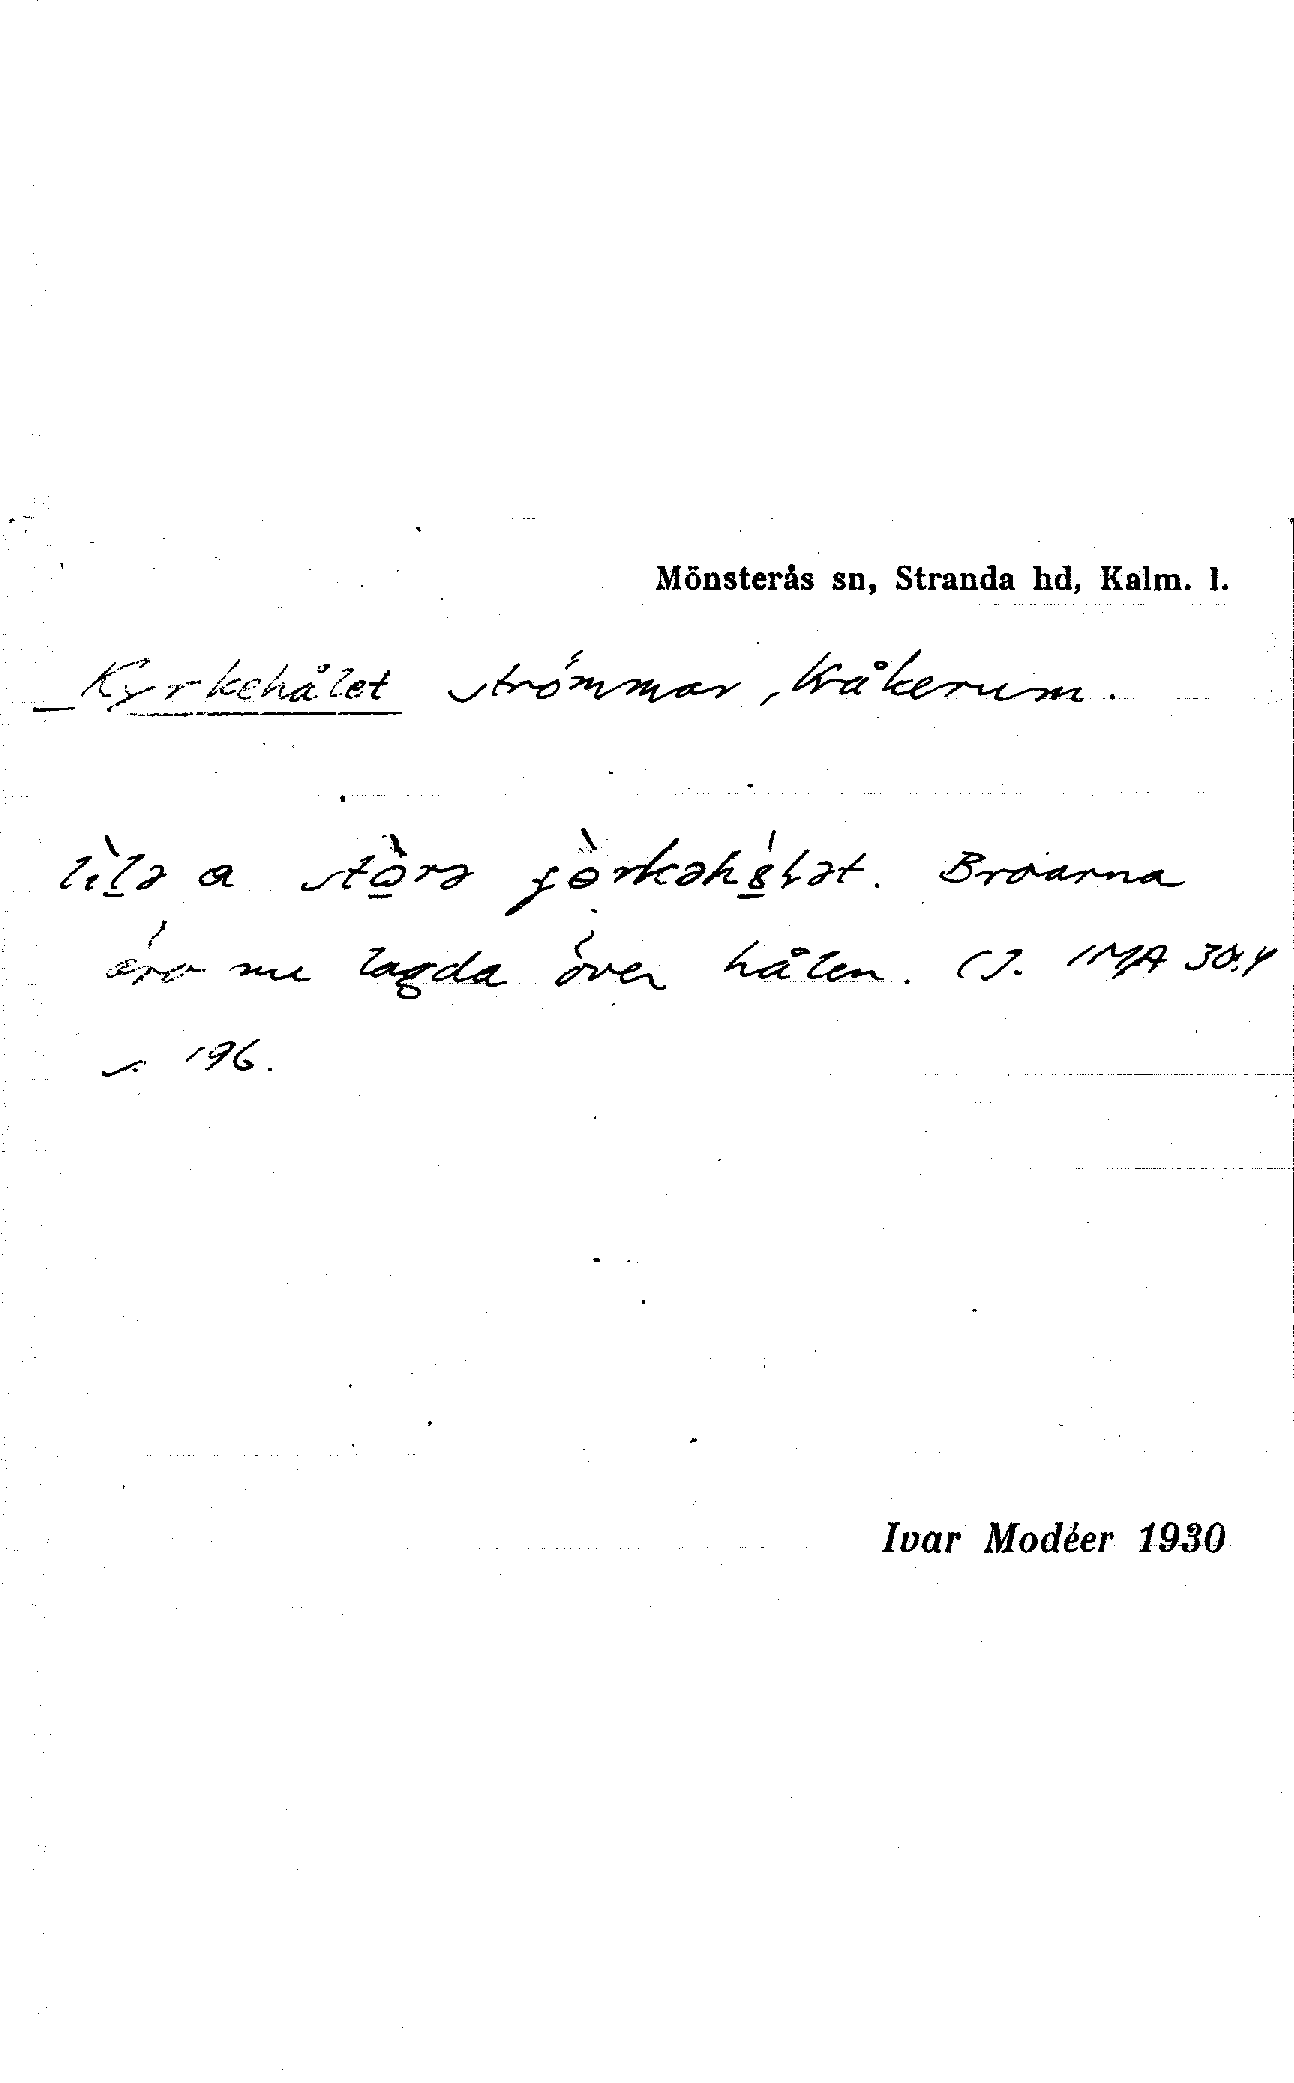 Mönsterås sn, Stranda hd, Kalm. l.
Kyrkehålet strömmar, Kråkerum.
lìlə a stòrə
Broarna
äro nu lagda över hålen. (J. IMA 30:4
s. 196.
Ivar Modéer 1930